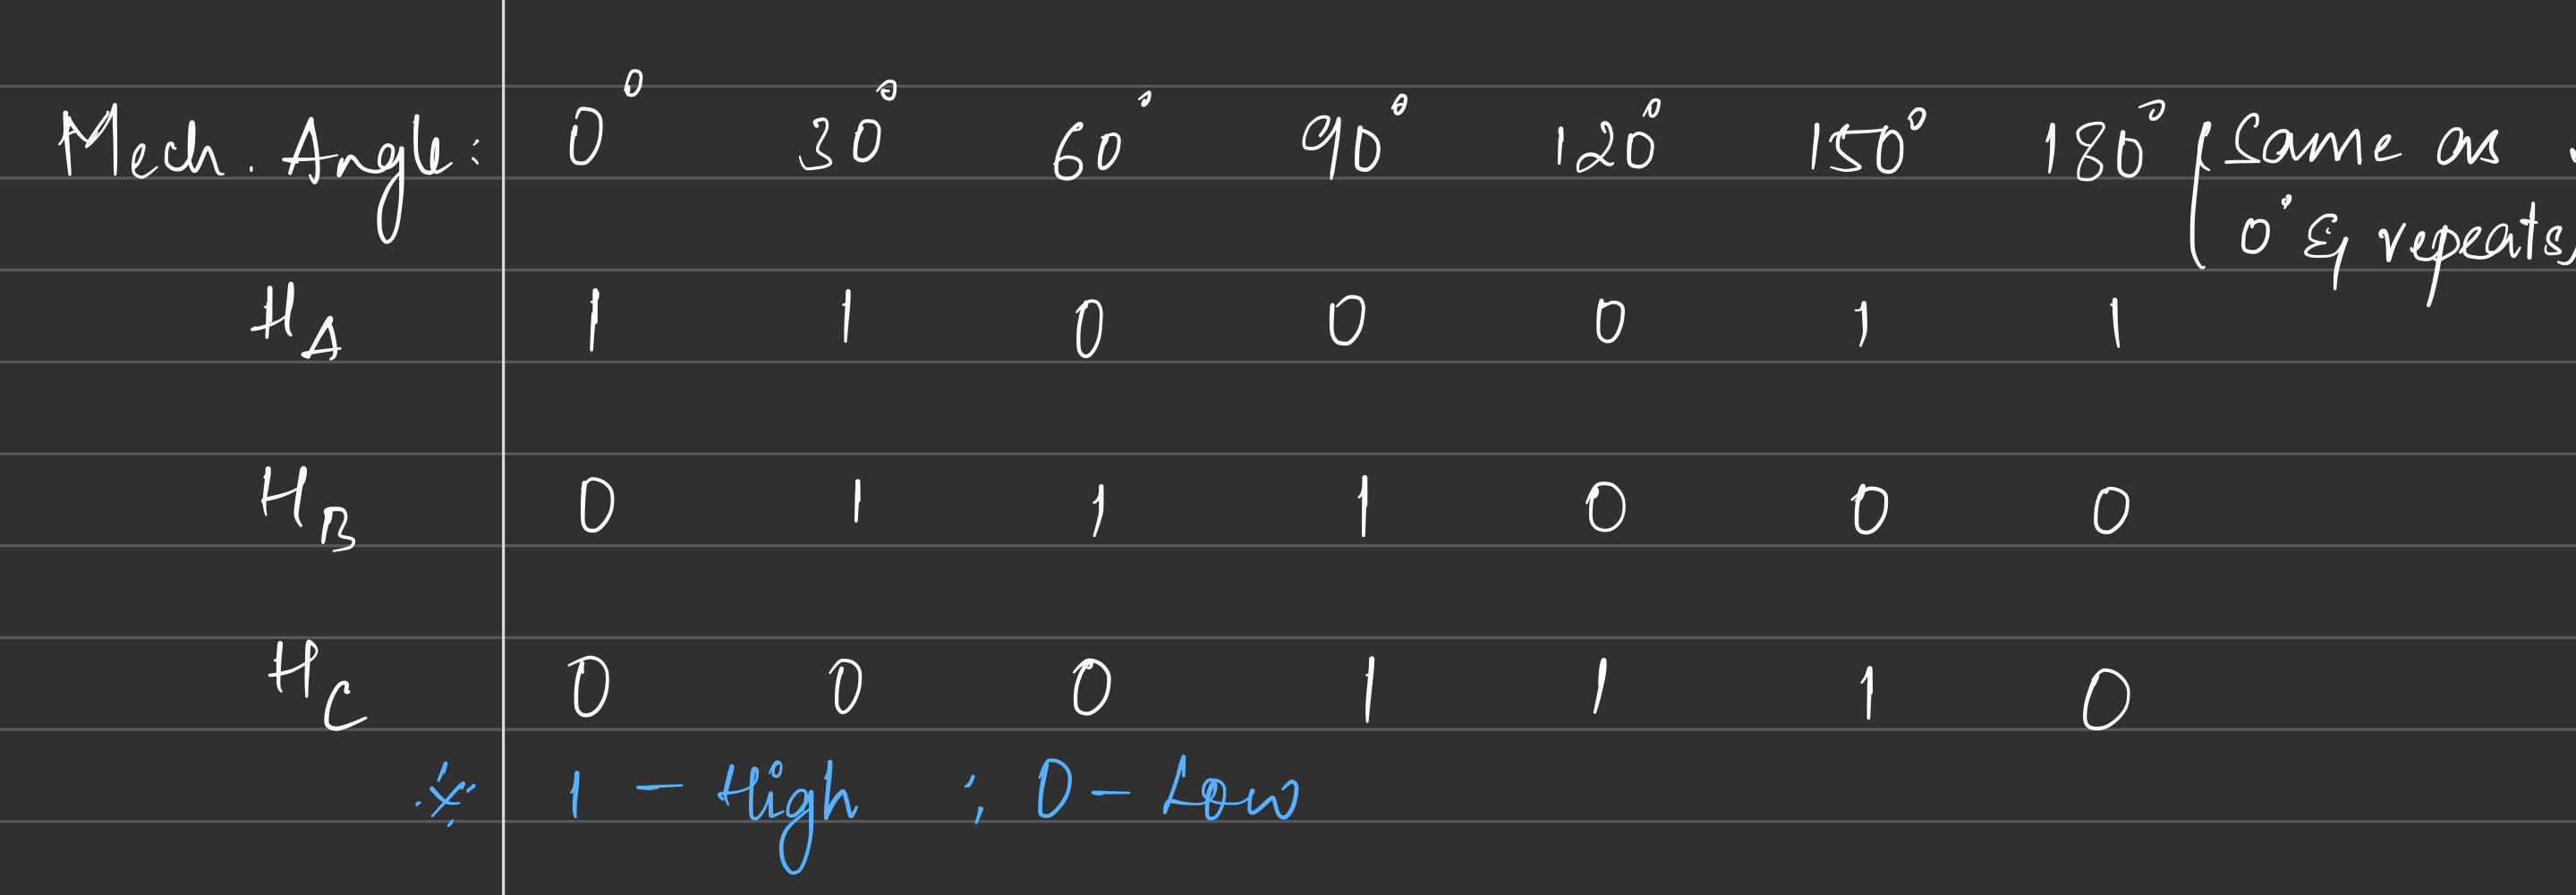 Mech. Angle: 0° 30° 60° 90° 120° 150° 180° (Same as
0° & repeats)
H_A 1 1 0 0 0 1 1
H_B 0 1 1 1 0 0 0
H_C 0 0 0 1 1 1 0
※ 1 - High ; 0 - Low